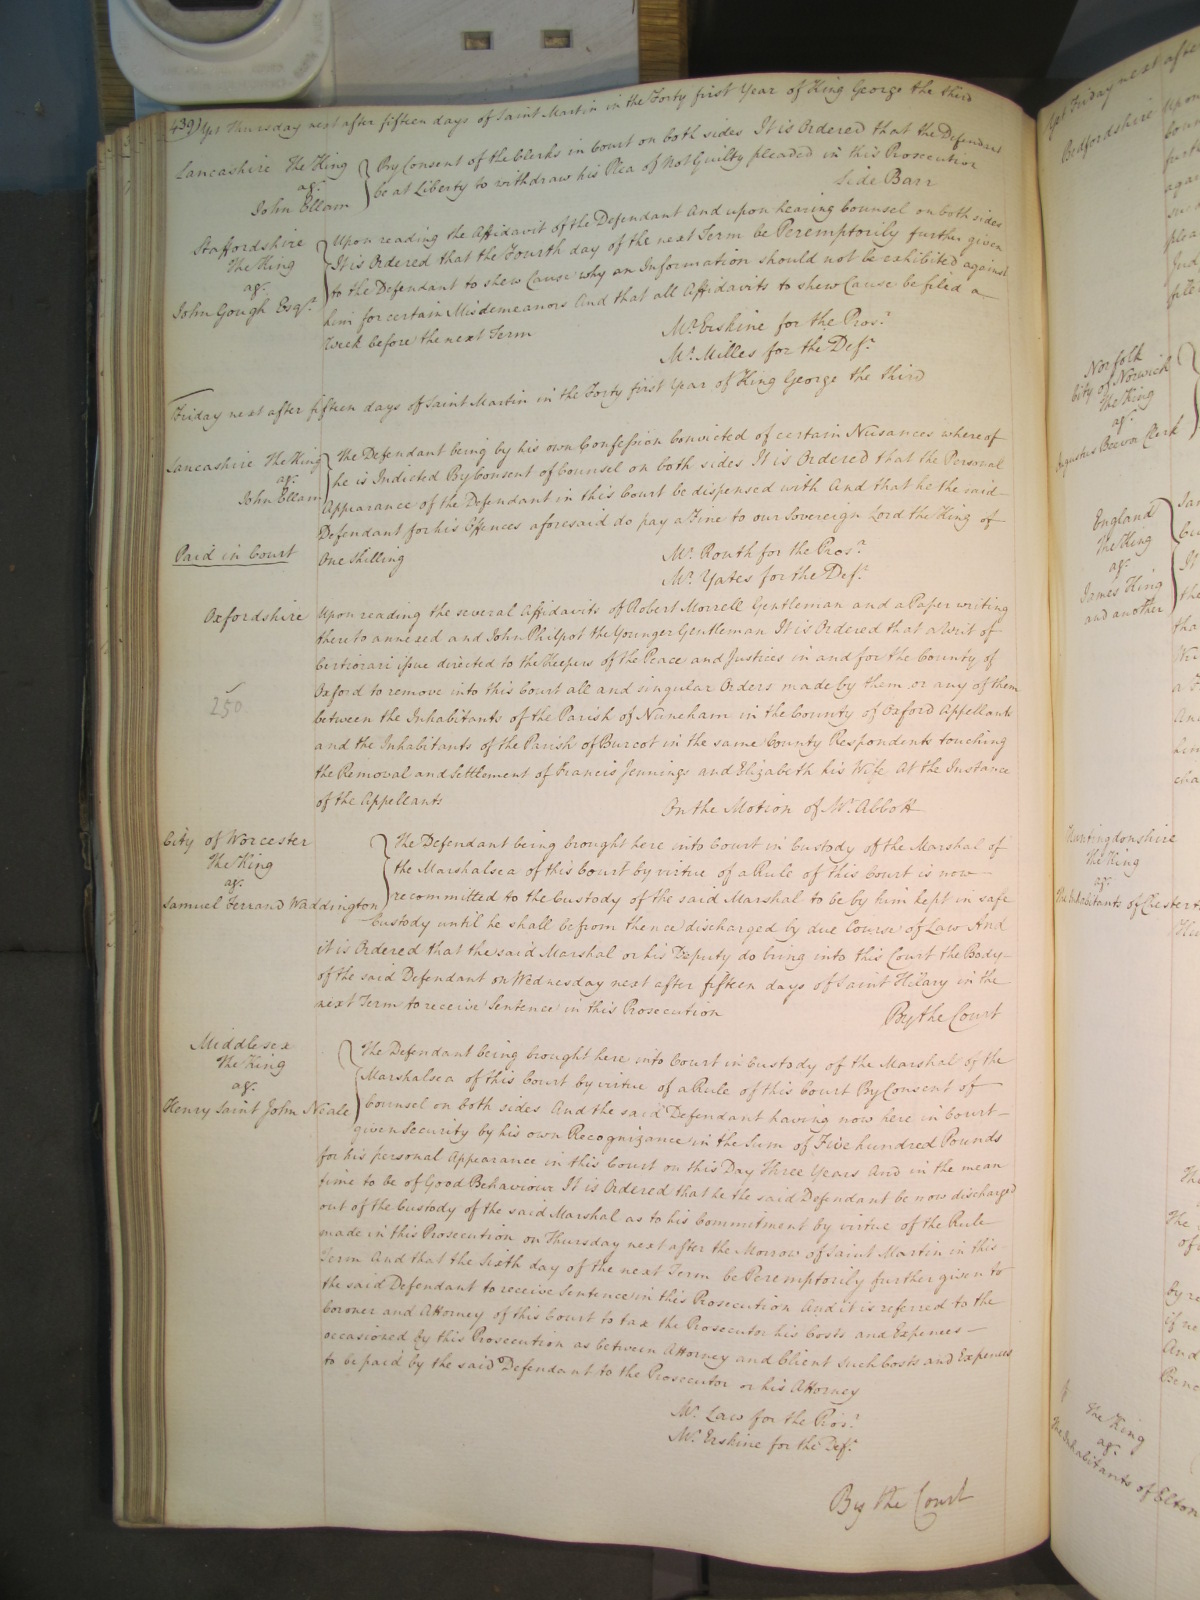 439) Yet Thursday next after fifteen days of Saint Martin in the Forty first Year of King George the third
Lancashire The King
agt.
John Ellam
By Consent of the Clerks in Court on both sides It is Ordered that the Defendant
be at Liberty to withdraw his Plea of Not Guilty pleaded in this Prosecution
Side Barr
Staffordshire
The King
agt.
John Gough Esqr.
Upon reading the Affidavit of the Defendant And upon hearing Counsel on both sides
It is Ordered that the Fourth day of the next Term be Peremptorily further given
to the Defendant to shew Cause why an Information should not be exhibited against
him for certain Misdemeanors And that all Affidavits to shew Cause be filed a
Week before the next Term
Mr. Erskine for the Prosr.
Mr. Milles for the Deft.
Friday next after fifteen days of Saint Martin in the Forty first Year of King George the third
Lancashire The King
agt.
John Ellam
The Defendant being by his own Confession Convicted of certain Nusances whereof
he is Indicted By Consent of Counsel on both sides It is Ordered that the Personal
Appearance of the Defendant in this Court be dispensed with And that he the said
Defendant for his Offences aforesaid do pay a Fine to our Sovereign Lord the King of
One Shilling
Paid in Court
Mr. Routh for the Prosr.
Mr. Yates for the Deft.
Oxfordshire
250
Upon reading the several Affidavits of Robert Morrell Gentleman and a Paper writing
thereto annexed and John Philpot the Younger Gentleman It is Ordered that a Writ of
Certiorari issue directed to the Keepers of the Peace and Justices in and for the County of
Oxford to remove into this Court all and singular Orders made by them or any of them
between the Inhabitants of the Parish of Nuneham in the County of Oxford Appellants
and the Inhabitants of the Parish of Burcot in the same County Respondents touching
the Removal and Settlement of Francis Jennings and Elizabeth his Wife At the Instance
of the Appellants
On the Motion of Mr. Abbott
City of Worcester
The King
agt.
Samuel Ferrand Waddington
The Defendant being brought here into Court in Custody of the Marshal of
the Marshalsea of this Court by virtue of a Rule of this Court is now
recommitted to the Custody of the said Marshal to be by him kept in safe
Custody until he shall be from thence discharged by due Course of Law And
it is Ordered that the said Marshal or his Deputy do bring into this Court the Body
of the said Defendant on Wednesday next after fifteen days of Saint Hilary in the
next Term to receive Sentence in this Prosecution
By the Court
Middlesex
The King
agt.
Henry Saint John Neale
The Defendant being brought here into Court in Custody of the Marshal of the
Marshalsea of this Court by virtue of a Rule of this Court By Consent of
Counsel on both sides And the said Defendant having now here in Court
given Security by his own Recognizance in the Sum of Five hundred Pounds
for his personal Appearance in this Court on this Day Three Years And in the mean
time to be of Good Behaviour It is Ordered that he the said Defendant be now discharged
out of the Custody of the said Marshal as to his Commitment by virtue of the Rule
made in this Prosecution on Thursday next after the Morrow of Saint Martin in this
Term And that the Sixth day of the next Term be Peremptorily further given to
the said Defendant to receive Sentence in this Prosecution And it is referred to the
Coroner and Attorney of this Court to tax the Prosecutor his Costs and Expences
occasioned by this Prosecution as between Attorney and Client such Costs and Expences
to be paid by the said Defendant to the Prosecutor or his Attorney
Mr. Law for the Prosr.
Mr. Erskine for the Deft.
By the Court
Yet Friday next after
Bedfordshire
Norfolk
City of Norwich
The King
agt.
Augustus Beevor Clerk
England
The King
agt.
James King
and another
Huntingdonshire
The King
agt.
The Inhabitants of Chester
The King
agt.
The Inhabitants of Elton